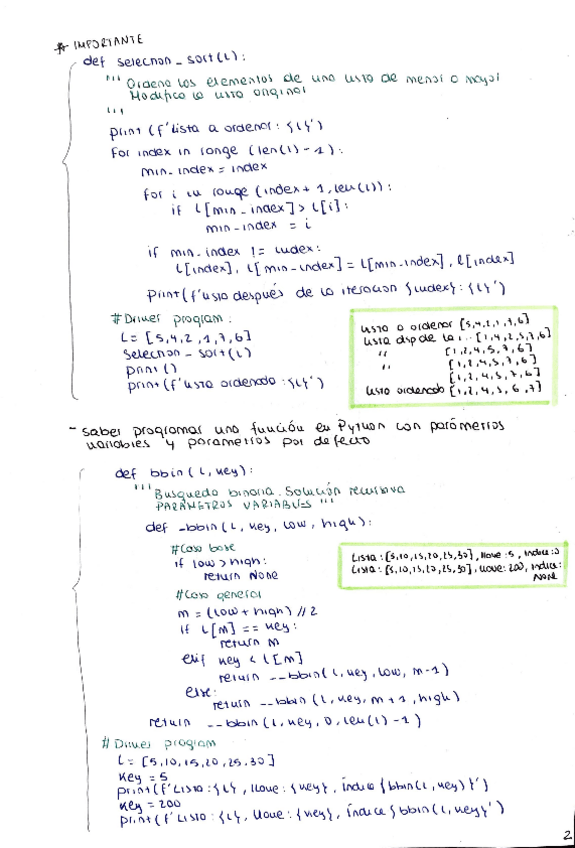 * IMPORTANTE
def selection_sort(L):
''' Ordena los elementos de una lista de menor a mayor
Modifica la lista original
'''
print (f'Lista a ordenar: {l}')
for index in range (len(l)-1):
min_index = index
for i in range (index+1, len(l)):
if l[min_index] > l[i]:
min_index = i
if min_index != index:
l[index], l[min_index] = l[min_index], l[index]
print(f'lista después de la iteracion {index}: {l}')
#Driver program:
L = [5,4,2,1,7,6]
selection_sort(L)
print()
print(f'lista ordenada: {L}')
lista a ordenar [5,4,2,1,7,6]
lista dsp de la i... [1,4,2,5,7,6]
" [1,2,4,5,7,6]
" [1,2,4,5,7,6]
[1,2,4,5,7,6]
lista ordenada [1,2,4,5,6,7]
- Saber programar una función en Python con parámetros
variables y parametros por defecto
def bbin(L, key):
''' Busqueda binaria. Solución recursiva
PARÁMETROS VARIABLES '''
def _bbin(L, key, low, high):
#Caso base
if low > high:
return None
#Caso general
m = (low + high) // 2
if L[m] == key:
return m
elif key < L[m]
return __bbin(L, key, low, m-1)
else:
return __bbin(L, key, m+1, high)
return __bbin(L, key, 0, len(l)-1)
Lista: [5,10,15,20,25,30], llave: 5, indice: 0
Lista: [5,10,15,20,25,30], llave: 200, indice:
None
# Driver program
L = [5,10,15,20,25,30]
key = 5
print(f'Lista: {L}, llave: {key}, índice {bbin(L, key)}')
key = 200
print(f'Lista: {L}, llave: {key}, índice {bbin(L, key)}')
2